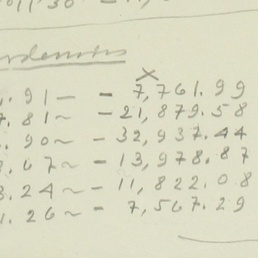 x
.91 — — 7,761.99
7.81 ~ — 21,879.58
.90 ~ — 32,937.44
.67 ~ — 13,978.87
3.24 ~ — 11,822.08
1.26 ~ — 7,567.29